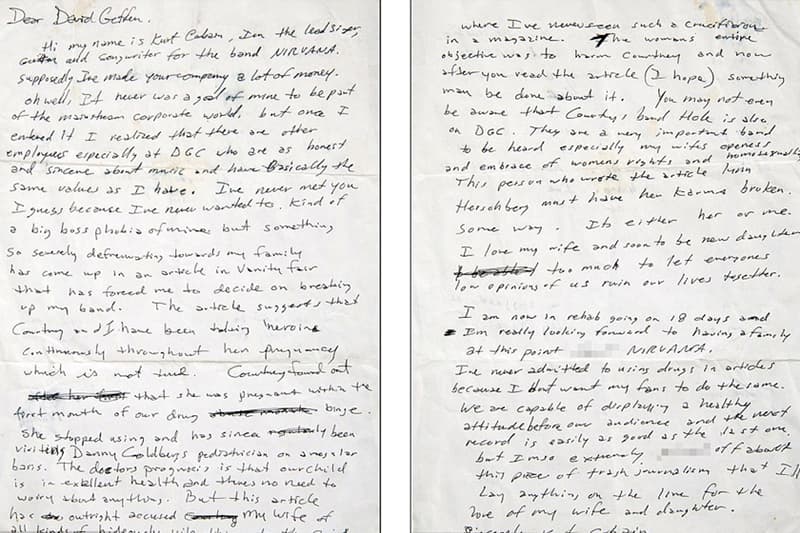 Dear David Geffen.
Hi my name is Kurt Cobain, Im the lead siger,
and songwriter for the band NIRVANA.
supposedly Ive made your company a lot of money.
oh well, It never was a goal of mine to be part
of the mainstream corporate world, but once I
entered it I realized that there are other
employees especially at DGC who are as honest
and sincere about music and have basically the
same values as I have. I've never met you
I guess because I've never wanted to. Kind of
a big boss phobia of mine but something
so severely defrewating towards my family
has come up in an article in Vanity fair
that has forced me to decide on breaking
up my band. The article suggests that
Courtney and I have been taking heroine
continuously throughout her pregnancy
which is not true. Courtney found out
that she was pregnant within the
first month of our drug binge.
She stopped using and has since been
visiting Danny Goldbergs pediatrician on a regular
basis. The doctors prognosis is that our child
is in exellent health and theres no need to
worry about anything. But this article
has outright accused My wife of
all kinds of hideously
where I've never seen such a crucifixion
in a magazine. The womans entire
objective was to harm Courtney and now
after you read the article (I hope) something
may be done about it. You may not even
be aware that Courtneys band Hole is also
on DGC. They are a very important band
to be heard especially my wifes openess
and embrace of womens rights and homosexuality
This person who wrote the article Lynn
Herschberg must have her Karma broken.
Some way. Its either her or me.
I love my wife and soon to be new daughter
too much to let everyones
low opinions of us ruin our lives together.
I am now in rehab going on 18 days and
Im really looking forward to having a family
at this point NIRVANA.
I've never admitted to using drugs in articles
because I dont want my fans to do the same.
We are capable of displaying a healthy
attitude before our audience and the next
record is easily as good as the last one.
but Im so extremely off about
this piece of trash journalism that I'll
Lay anything on the line for the
love of my wife and daughter.